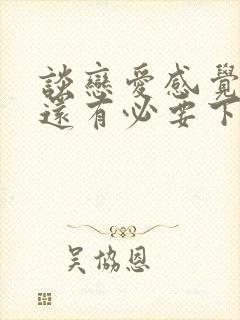 談戀愛感覺
還有必要下
吳協恩